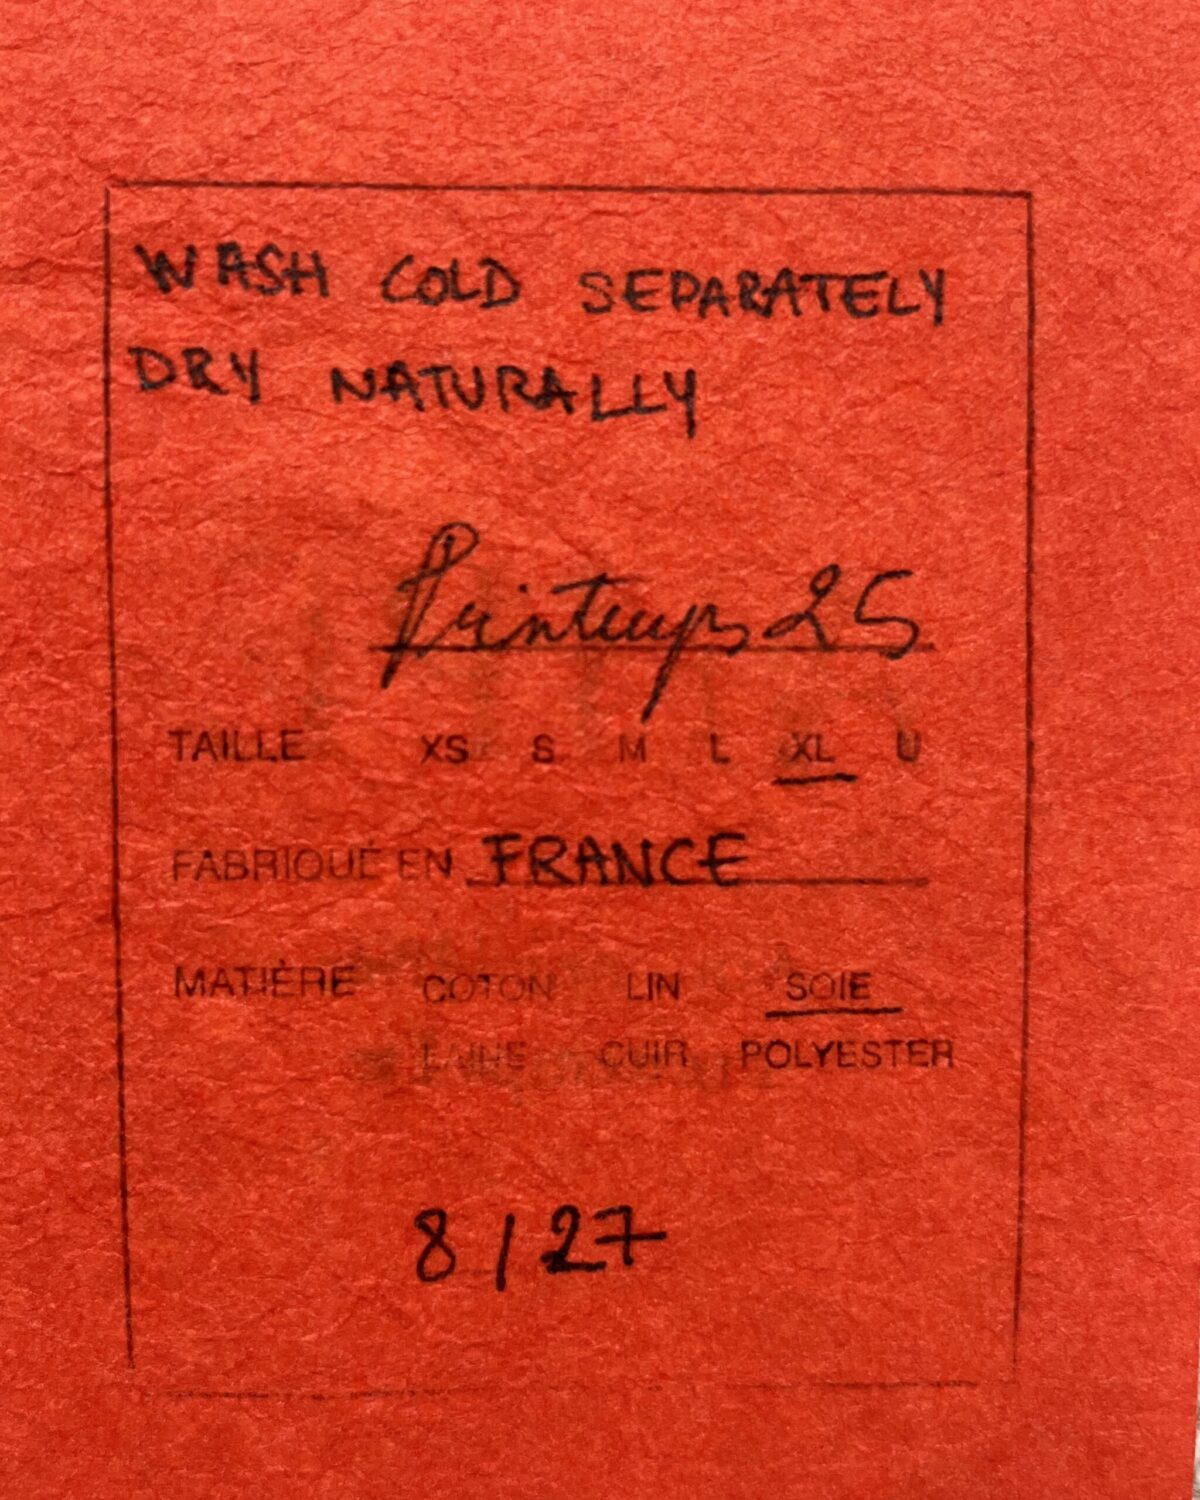 WASH COLD SEPARATELY
DRY NATURALLY
Printemps 25
TAILLE XS S M L XL U
FABRIQUÉ EN FRANCE
MATIÈRE COTON LIN SOIE
LAINE CUIR POLYESTER
8/27